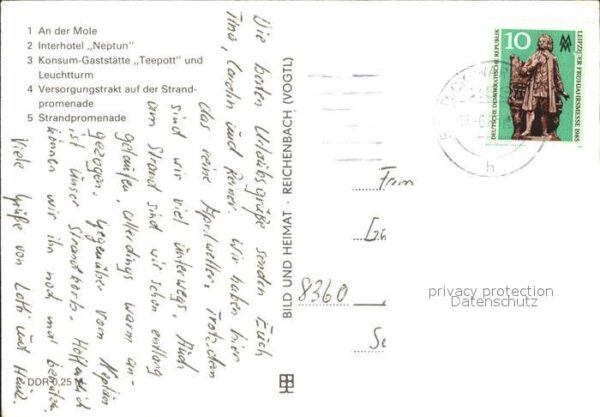 1 An der Mole
2 Interhotel „Neptun"
3 Konsum-Gaststätte „Teepott" und
Leuchtturm
4 Versorgungstrakt auf der Strand-
promenade
5 Strandpromenade
Die besten Urlaubsgrüße senden Euch
Timo, Carolin und Reiner. Wir haben hier
das reine Aprilwetter. Trotzdem
sind wir viel unterwegs. Auch
am Strand sind wir schon entlang
gelaufen, allerdings warm an-
gezogen. Gegenüber vom Neptun
ist unser Strandkorb. Hoffentlich
können wir ihn noch mal benutzen.
Viele Grüße von Lotti und Heinz.
DDR 0,25
BILD UND HEIMAT · REICHENBACH (VOGTL)
LEIPZIGER FRÜHJAHRSMESSE 1985
DEUTSCHE DEMOKRATISCHE REPUBLIK
10
h
Fam
8360
privacy protection
Datenschutz